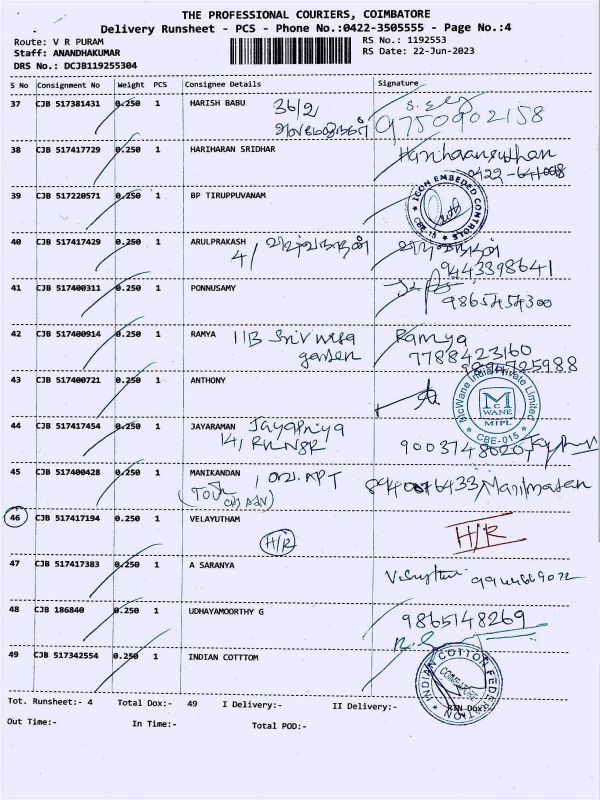 THE PROFESSIONAL COURIERS, COIMBATORE
Delivery Runsheet - PCS - Phone No.:0422-3505555 - Page No.:4
Route: V R PURAM
RS No.: 1192553
Staff: ANANDHAKUMAR
RS Date: 22-Jun-2023
DRS No.: DCJB119255304
S No Consignment No Weight PCS Consignee Details Signature
37 CJB 517381431 0.250 1 HARISH BABU 36/2
9750902158
38 CJB 517417729 0.250 1 HARIHARAN SRIDHAR
39 CJB 517220571 0.250 1 BP TIRUPPUVANAM
ICON EMBEDED CONTROLS
CBE-15
40 CJB 517417429 0.250 1 ARULPRAKASH
4/
9443398641
41 CJB 517400311 0.250 1 PONNUSAMY
9865454300
42 CJB 517400914 0.250 1 RAMYA 11B Srinivasa Ramya
garden 7788423160
43 CJB 517400721 0.250 1 ANTHONY
McWane India Private Limited
McWANE
MIPL
CBE-015
44 CJB 517417454 0.250 1 JAYARAMAN Jayapriya
9003748020
45 CJB 517400428 0.250 1 MANIKANDAN
46 CJB 517417194 0.250 1 VELAYUTHAM
H/R H/R
47 CJB 517417383 0.250 1 A SARANYA
48 CJB 186840 0.250 1 UDHAYAMOORTHY G 9865148269
49 CJB 517342554 0.250 1 INDIAN COTTTOM
INDIAN COTTON FEDERATION
COIMBATORE
Tot. Runsheet:- 4 Total Dox:- 49 I Delivery:- II Delivery:- RTN Dox:-
Out Time:- In Time:- Total POD:-